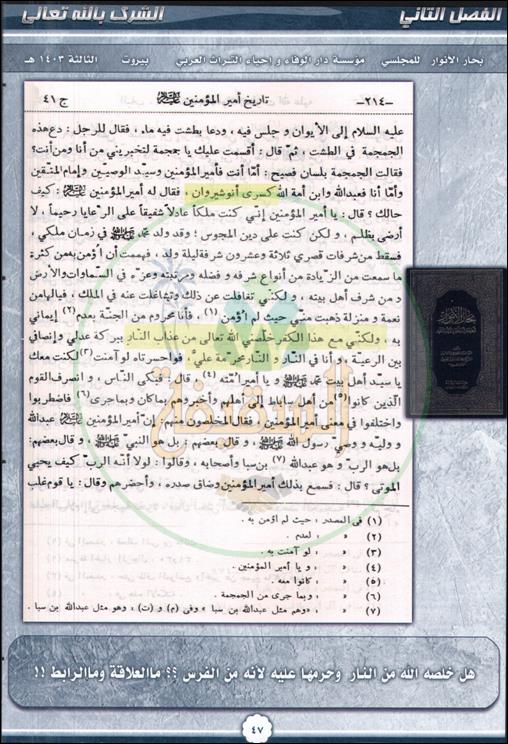 الفصل الثاني
الشرك بالله تعالى
بحار الأنوار للمجلسي مؤسسة دار الوفاء و احياء التراث العربي بيروت الثالثة ١٤٠٣ هـ
-٢١٤- تاريخ أمير المؤمنين عليه السلام ج ٤١
عليه السلام إلى الأيوان و جلس فيه ، ودعا بطشت فيه ماء ، فقال للرجل : دع هذه
الجمجمة في الطشت ، ثم قال : أقسمت عليك يا جمجمة لتخبريني من أنا ومن أنت؟
فقالت الجمجمة بلسان فصيح : أمّا أنت فأمير المؤمنين وسيّد الوصيين وإمام المتّقين
وأمّا أنا فعبدالله وابن أمة الله كسرى أنوشيروان ، فقال له أمير المؤمنين عليه السلام : كيف
حالك ؟ قال : يا أمير المؤمنين إنّي كنت ملكاً عادلاً شفيقاً على الرعايا رحيماً ، لا
أرضى بظلم ، و لكن كنت على دين المجوس ؛ وقد ولد محمد صلى الله عليه وآله في زمان ملكي ،
فسقط من شرفات قصري ثلاثة وعشرون شرفة ليلة ولد ، فهممت أن اُؤمن به من كثرة
ما سمعت من الزيادة من أنواع شرفه و فضله و مرتبته وعزّه في السماوات والأرض
و من شرف أهل بيته ، و لكنّي تغافلت عن ذلك وتشاغلت عنه في الملك ، فيالها من
نعمة و منزلة ذهبت منّي حيث لم اُؤمن (١) ، فأنا محروم من الجنّة بعدم (٢) إيماني
به ، ولكنّي مع هذا الكفر خلّصني الله تعالى من عذاب النار ببركة عدلي وإنصافي
بين الرعيّة ، و أنا في النار و النار محرّمة عليّ ، فواحسرتاه لو آمنت (٣) لكنت معك
يا سيّد أهل بيت محمد صلى الله عليه وآله و يا أمير اُمّته (٤) ، قال : فبكى الناس ، و انصرف القوم
الّذين كانوا (٥) من أهل ساباط إلى أهلهم وأخبروهم بما كان وبما جرى (٦) فاضطربوا
واختلفوا في معنى أمير المؤمنين ، فقال المخلصون منهم : إنّ أمير المؤمنين عليه السلام عبدالله
و وليّه و وصيّ رسول الله صلى الله عليه وآله ، و قال بعضهم : بل هو النبي صلى الله عليه وآله ، و قال بعضهم :
بل هو الرب و هو عبدالله (٧) بن سبا وأصحابه ، وقالوا : لولا أنه الرب كيف يحيي
الموتى ؟ قال : فسمع بذلك أمير المؤمنين وضاق صدره ، وأحضرهم وقال : يا قوم غلب
(١) في المصدر : حيث لم اؤمن به .
(٢) » » : لعدم .
(٣) » » : لو آمنت به .
(٤) » » : و يا أمير المؤمنين .
(٥) » » : كانوا معه .
(٦) » » : وبما جرى من الجمجمة .
(٧) » » : «وهم مثل عبدالله بن سبا» وفى (م) و (ت) : وهو مثل عبدالله بن سبا .
السقيفة
بحار الأنوار
هل خلصه الله من النار وحرمها عليه لأنه من الفرس ؟؟ ماالعلاقة وماالرابط !!
٤٧